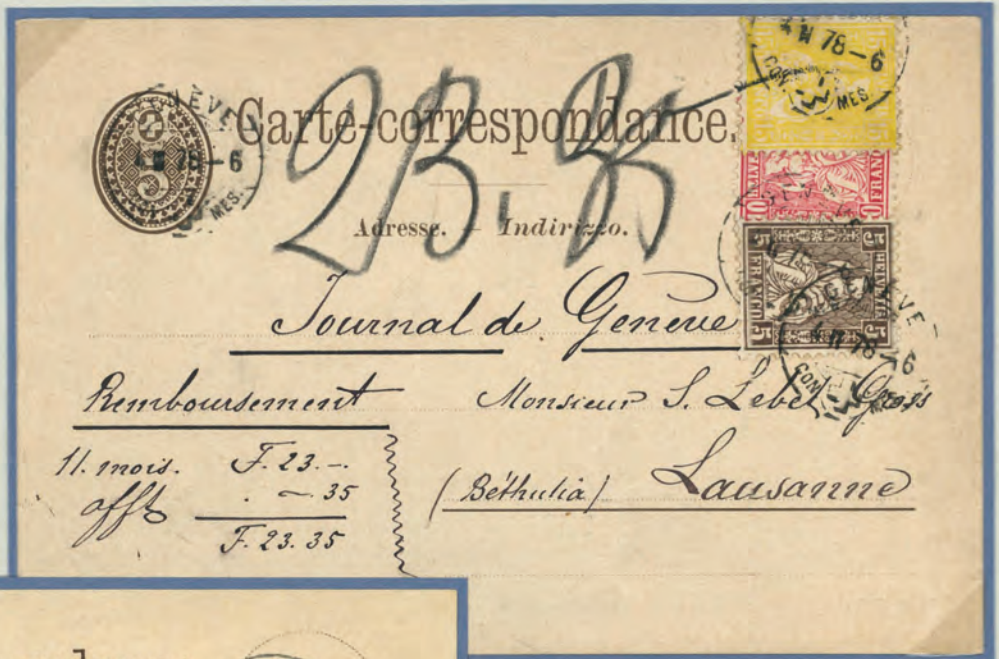 Carte-correspondance.
23.35
Adresse. — Indirizzo.
Journal de Genève
Remboursement
Monsieur S. Lebet
11. mois. F. 23.-.
. — 35
afft
F. 23. 35
(Béthulia) Lausanne
GENÈVE
4 II 78 — 6
MES.
4 II 78 — 6
MES.
10
FRANCO
5
5
FRANCO
HELVETIA
5
5
GENÈVE
4 II 78 — 6